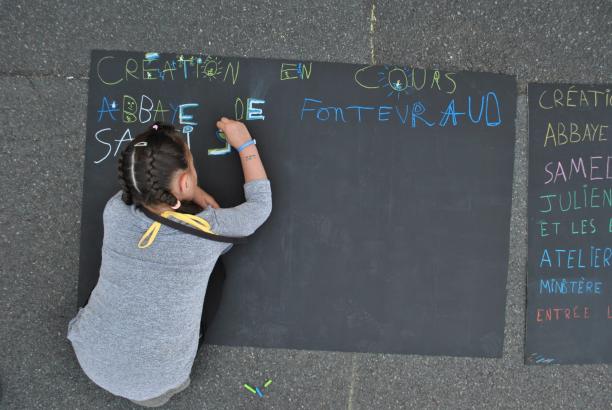 CRÉATION EN COURS
ABBAYE DE FONTEVRAUD
CRÉATI
ABBAYE
SAMED
JULIEN
ET LES
ATELIER
MINSTÈRE
ENTRÉE L